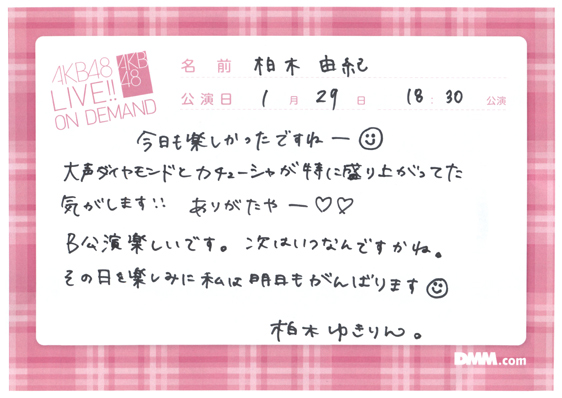 AKB48
LIVE!!
ON DEMAND
AKB
48
名前 柏木由紀
公演日 1月29日 18:30公演
今日も楽しかったですねー
大声ダイヤモンドとカチューシャが特に盛り上がってた
気がします!! ありがたやー♡♡
B公演楽しいです。次はいつなんですかね。
その日を楽しみに私は明日もがんばります
柏木ゆきりん。
DMM.com